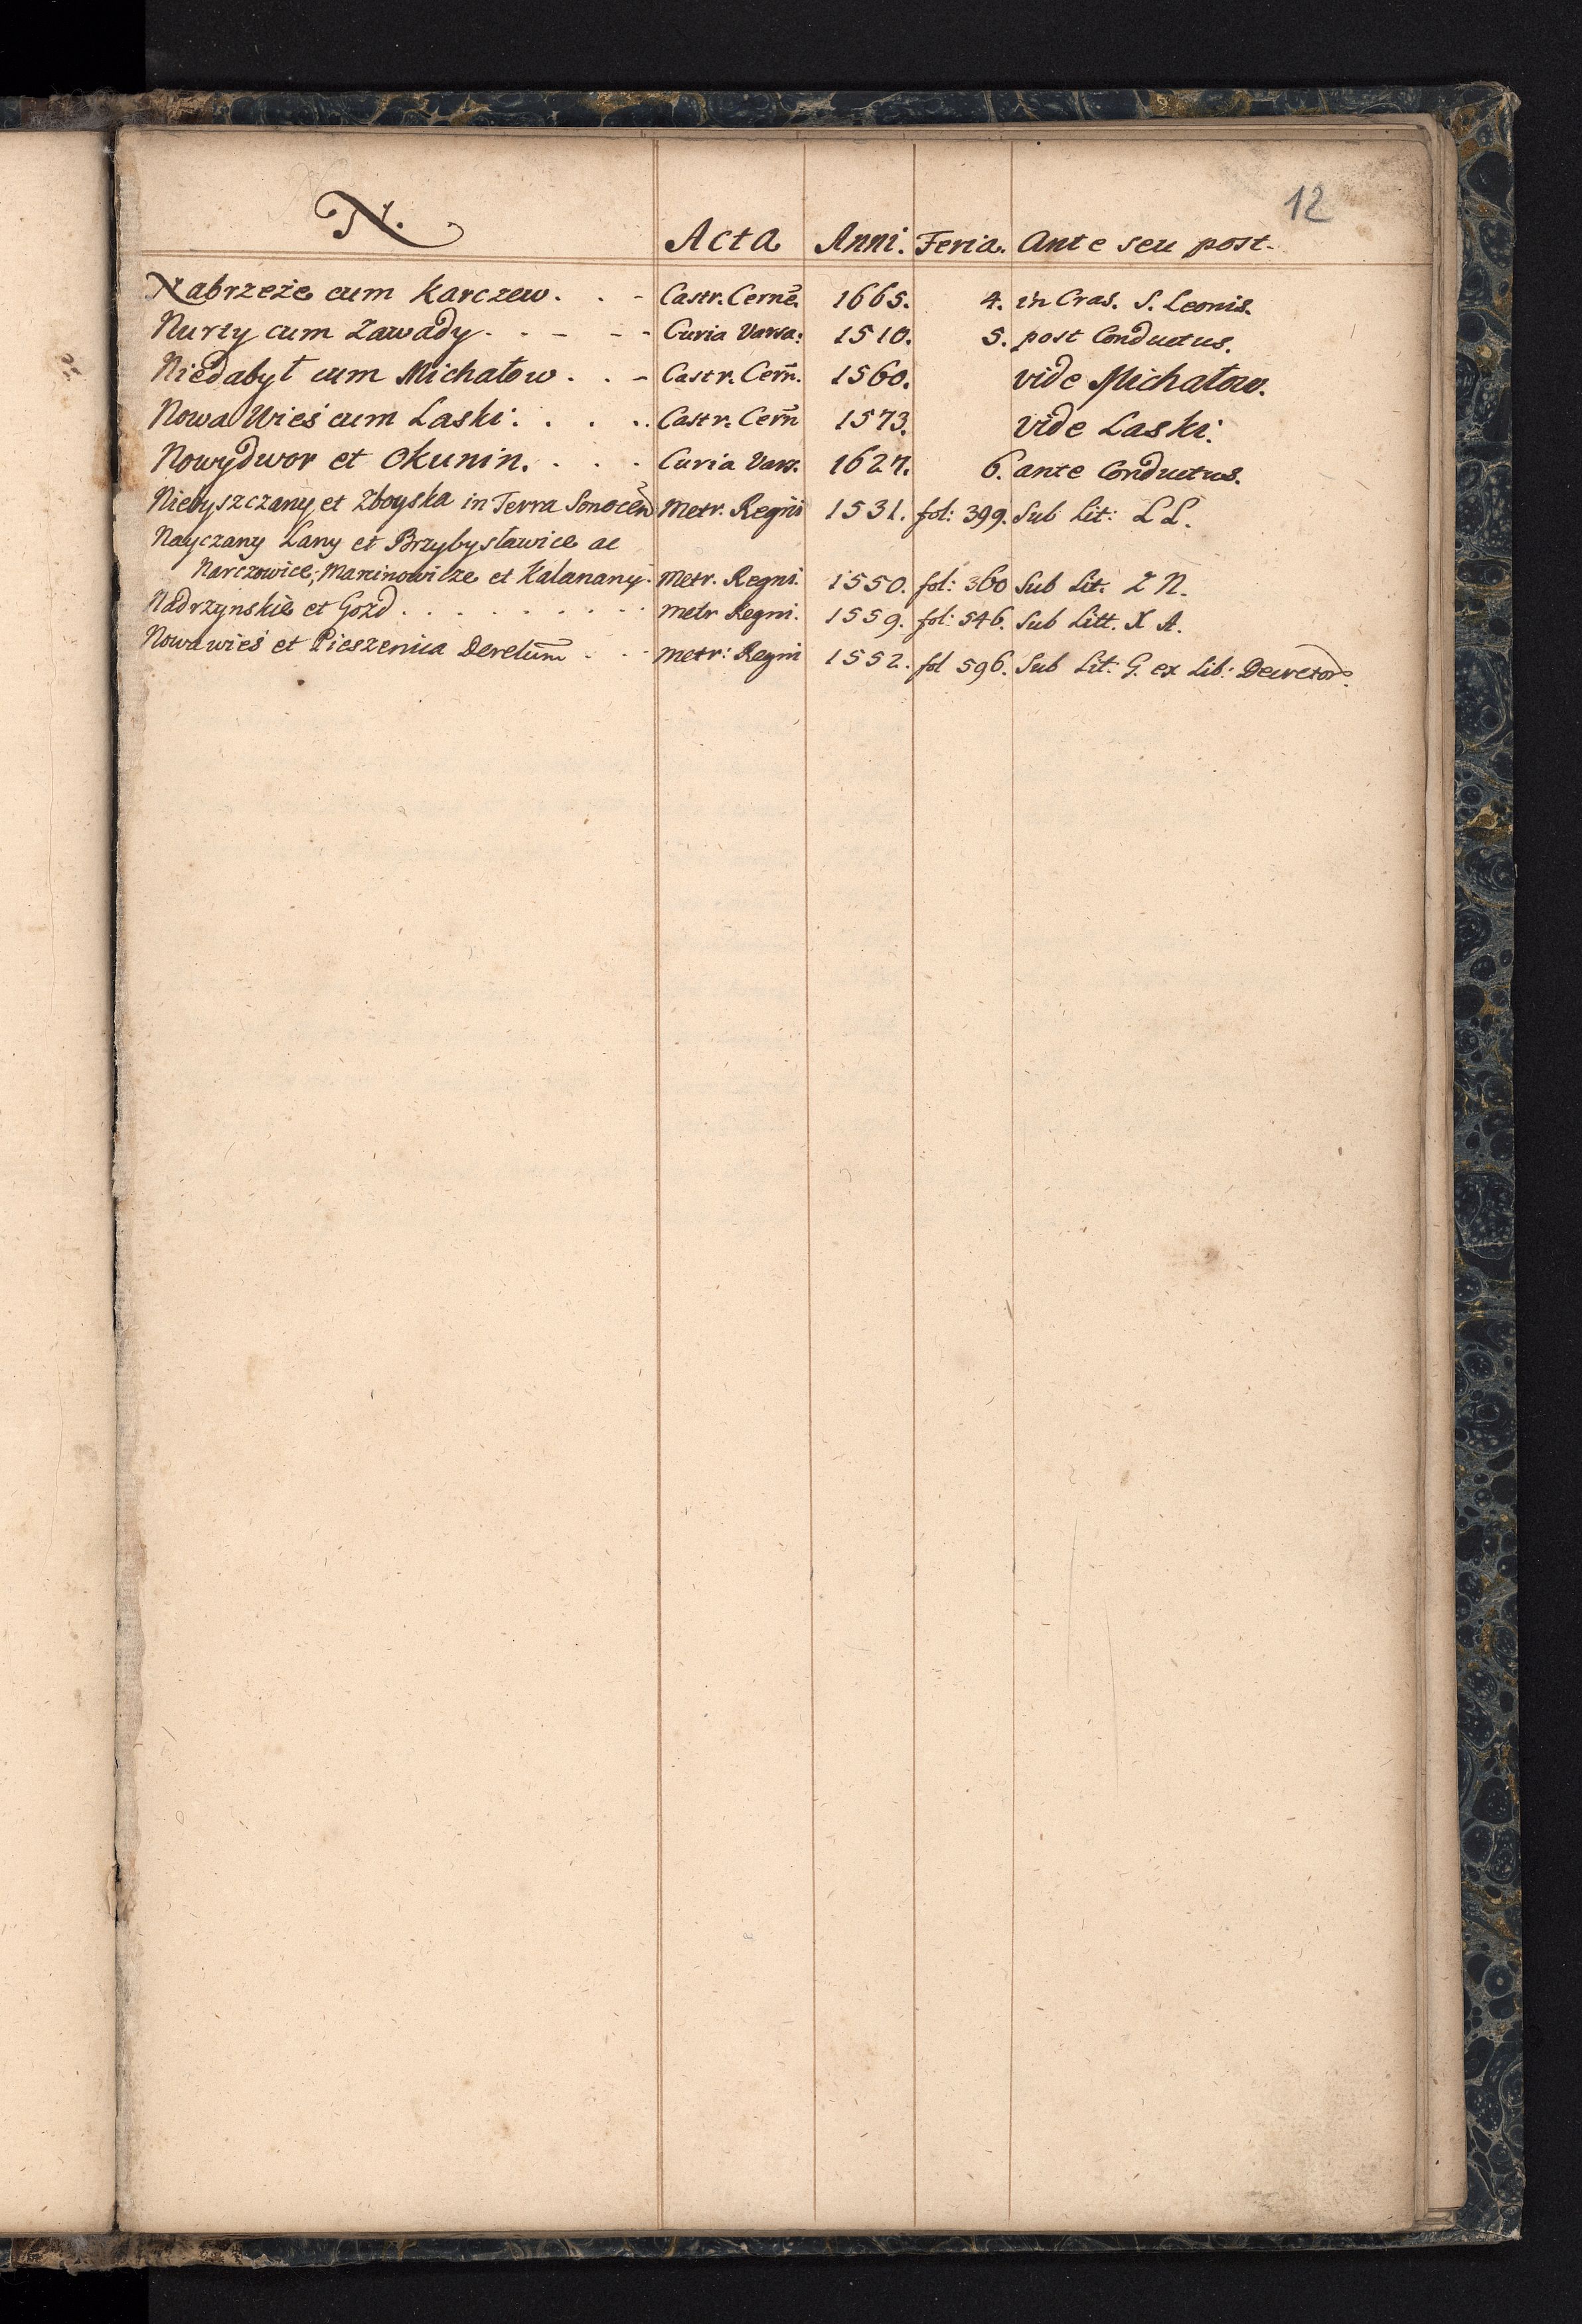 12
N. Acta Anni. Feria. Ante seu post.
Nabrzeże cum Karczew. . - Castr. Cerne. 1665. 4. in Cras. S. Leonis.
Nurty cum Zawady. . - - - Curia Varsa: 1510. 5. post Conductus.
Niedabył cum Michałow . . - Castr. Cern. 1560. vide Michałow.
Nowa Wieś cum Laski: . . .. Castr. Cern 1573. vide Laski.
Nowydwor et Okunin. . . . Curia Vars. 1627. 6. ante Conductus.
Niebyszczany et Zboyska in Terra Sonocen Metr. Regni 1531. fol: 399. Sub Lit: LL.
Nayczany Lany et Brzybysławice ac
Narczowice; Marcinowicze et Kalanany. Metr. Regni. 1550. fol: 360 Sub Lit. Z N.
Nadrzynskie et Gozd . . . . . . . . . Metr Regni. 1559. fol: 546. Sub Litt. X A.
Nowawieś et Pieszenica . . . Metr: Regni 1552. fol 596. Sub Lit: G. ex Lib: Decretor.